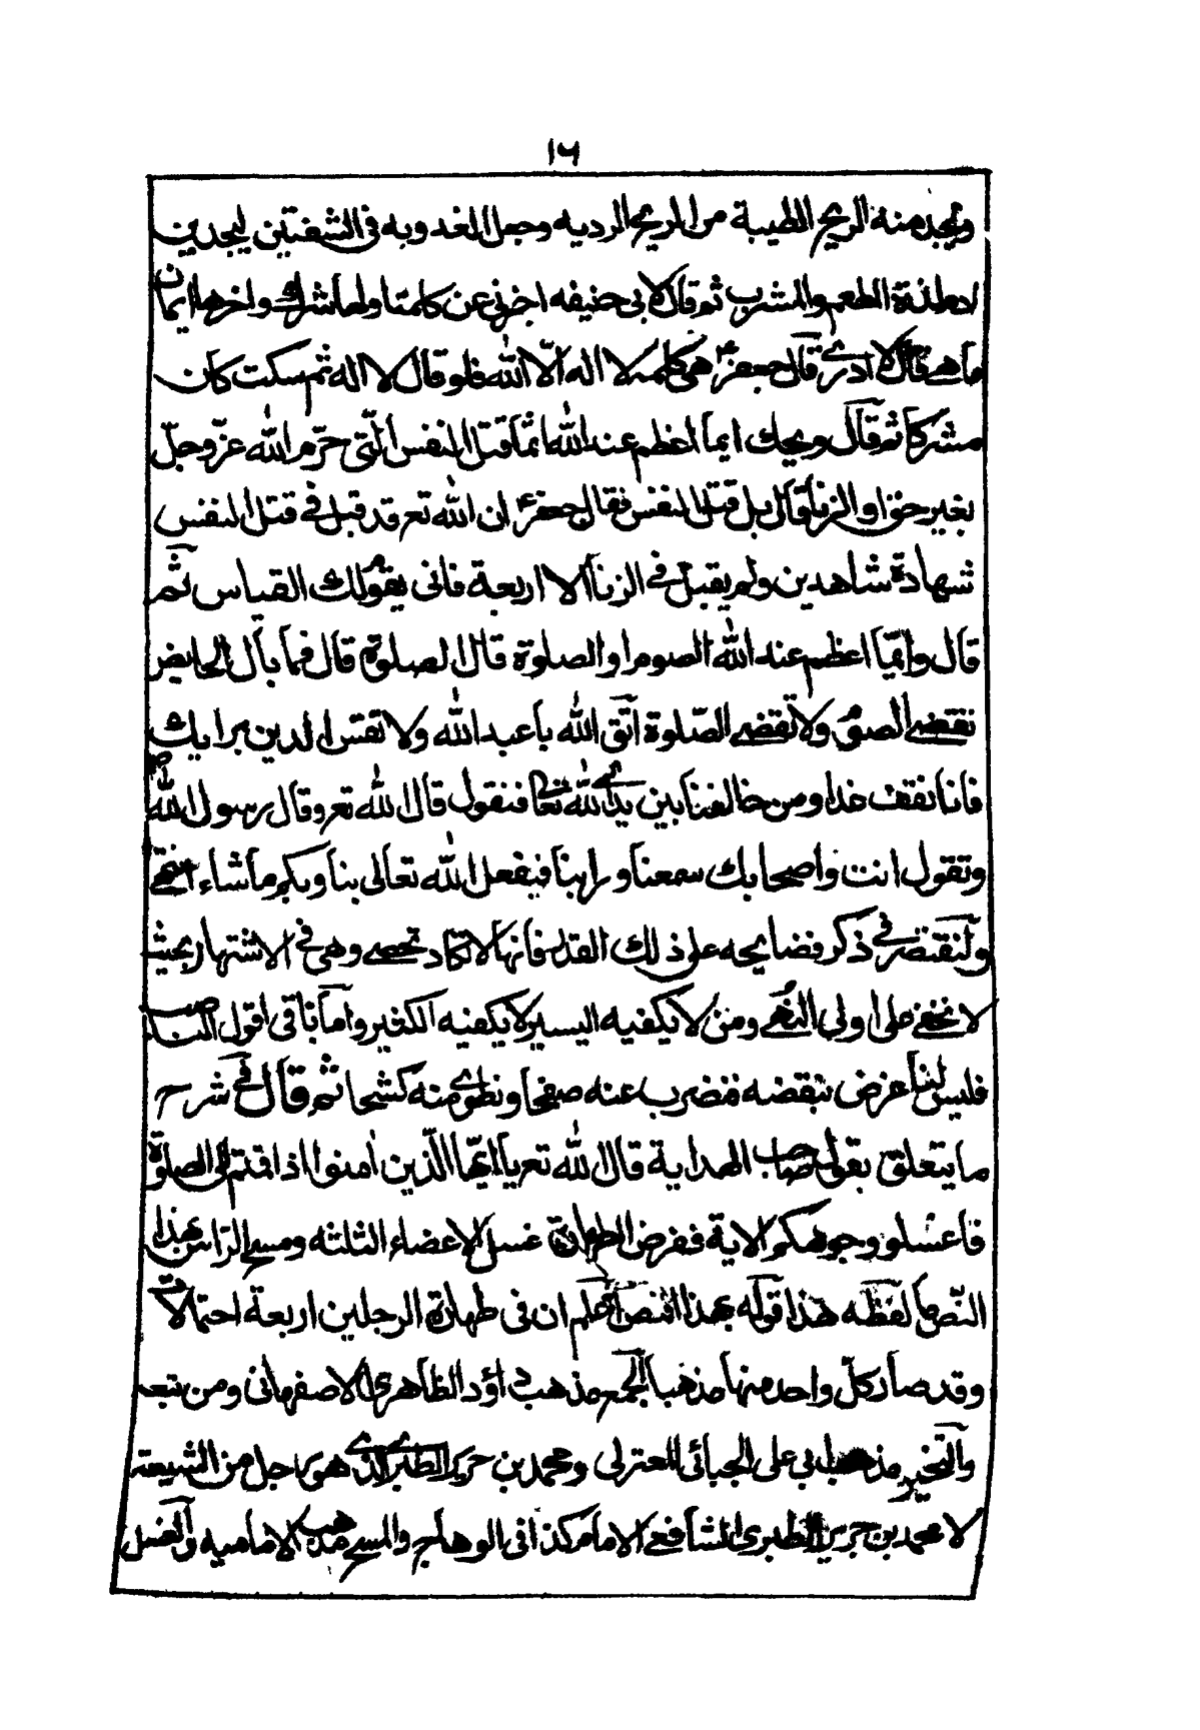 ١٦
ويجد منه الريح الطيبة من الريح الرديه وجعل العذوبه فى الشفتين ليجد بن
ادم لذة الطعم والمشرب ثم قال لابى حنيفه اخبرنى عن كلمة اولها شرك واخرها ايمان
ما هى قال لا ادرى قال جعفرؑ هى كلمة لا اله الّا الله فلو قال لا اله ثم سكت كان
مشركا ثم قال ويحك ايما اعظم عند الله اثما قتل النفس الّتى حرّم الله عزّ وجلّ
بغير حق او الزنا قال بل قتل النفس فقال جعفرؑ ان الله تعر قد قبل فى قتل النفس
شهادة شاهدين ولم يقبل فى الزنا الا اربعة فانى يقوم لك القياس ثم
قال وايّما اعظم عند الله الصوم او الصلوة قال الصلوة قال فما بال الحايض
تقضى الصوم ولا تقضى الصّلوة اتّق الله يا عبد الله ولا تقس الدين برايك
فانا نقف غدا ومن خالفنا بين يدى الله تعا فنقول قال الله تعر وقال رسول الله ص
وتقول انت واصحابك سمعنا وراينا فيفعل الله تعالى بنا وبكم ما شاء انتهى
ولنقتصر فى ذكر فضايحه على ذلك القدر فانها لا تكاد تحصى وهى فى الاشتهار بحيث
لا تخفى على اولى النهى ومن لا يكفيه اليسير لا يكفيه الكثير واما باقى اقول الناصب
فليس لنا غرض بنقضه فنضرب عنه صفحا ونطوى منه كشحا ثم قال فى شرح
ما يتعلق بقول صاحب الهداية قال الله تعر يا ايّها الّذين اٰمنوا اذا قمتم الى الصلوة
فاغسلو وجوهكم الاية ففرض الطهارة غسل الاعضاء الثلثه ومسح الرّاس بهذا
النّص ما لفظه هذا قوله بهذا النص اعلم ان فى طهارة الرجلين اربعة احتمالات
وقد صار كلّ واحد منها مذهبا الجمع مذهب داؤد الظاهرى الاصفهانى ومن تبعه
والتخيير مذهب ابى على الجبائى المعتزلى ومحمد بن جرير الطبرى الذى هو راجل من الشيعة
لا محمد بن جرير الطبرى الشافعى الامام كذا فى الوهاج والمسح مذهب الاماميه والغسل